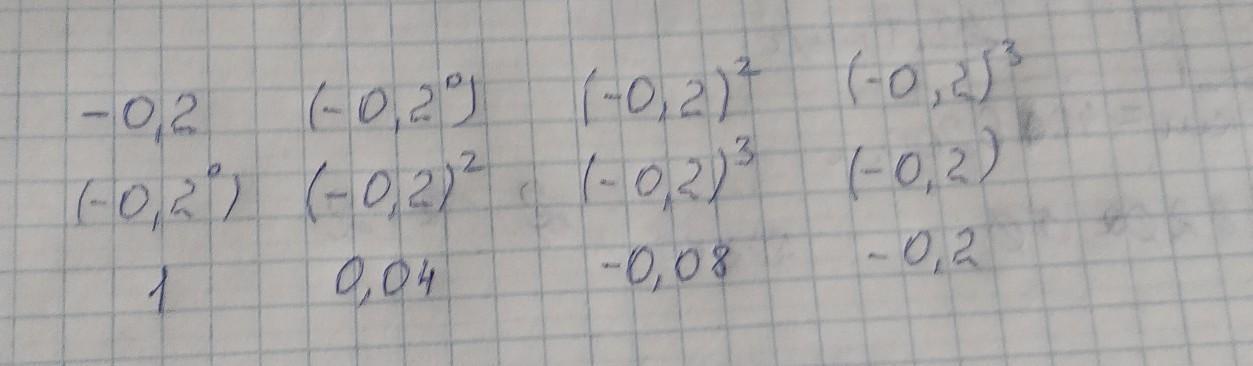 -0,2 (-0,2⁰) (-0,2)² (-0,2)³
(-0,2⁰) (-0,2)² (-0,2)³ (-0,2)
1 0,04 -0,08 -0,2